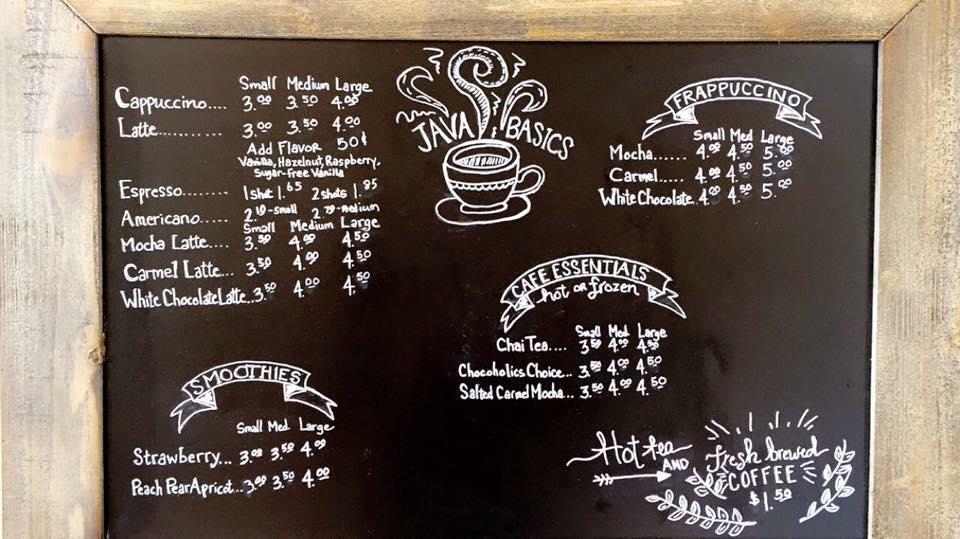 JAVA BASICS
Small Medium Large
Cappuccino.... 3.00 3.50 4.00
Latte.......... 3.00 3.50 4.00
Add Flavor 50¢
Vanilla, Hazelnut, Raspberry,
Sugar-Free Vanilla
Espresso........ 1 shot 1.65 2 shots 1.85
Americano..... 2.19-small 2.79-medium
Small Medium Large
Mocha Latte.... 3.50 4.00 4.50
Carmel Latte... 3.50 4.00 4.50
White Chocolate Latte.. 3.50 4.00 4.50
SMOOTHIES
Small Med. Large
Strawberry... 3.00 3.50 4.00
Peach Pear Apricot... 3.00 3.50 4.00
FRAPPUCCINO
Small Med Large
Mocha...... 4.00 4.50 5.00
Carmel..... 4.00 4.50 5.00
White Chocolate.. 4.00 4.50 5.00
CAFE ESSENTIALS
hot or frozen
Small Med Large
Chai Tea.... 3.50 4.00 4.50
Chocoholics Choice... 3.50 4.00 4.50
Salted Carmel Mocha... 3.50 4.00 4.50
Hot tea
AND
fresh brewed
COFFEE
$1.50